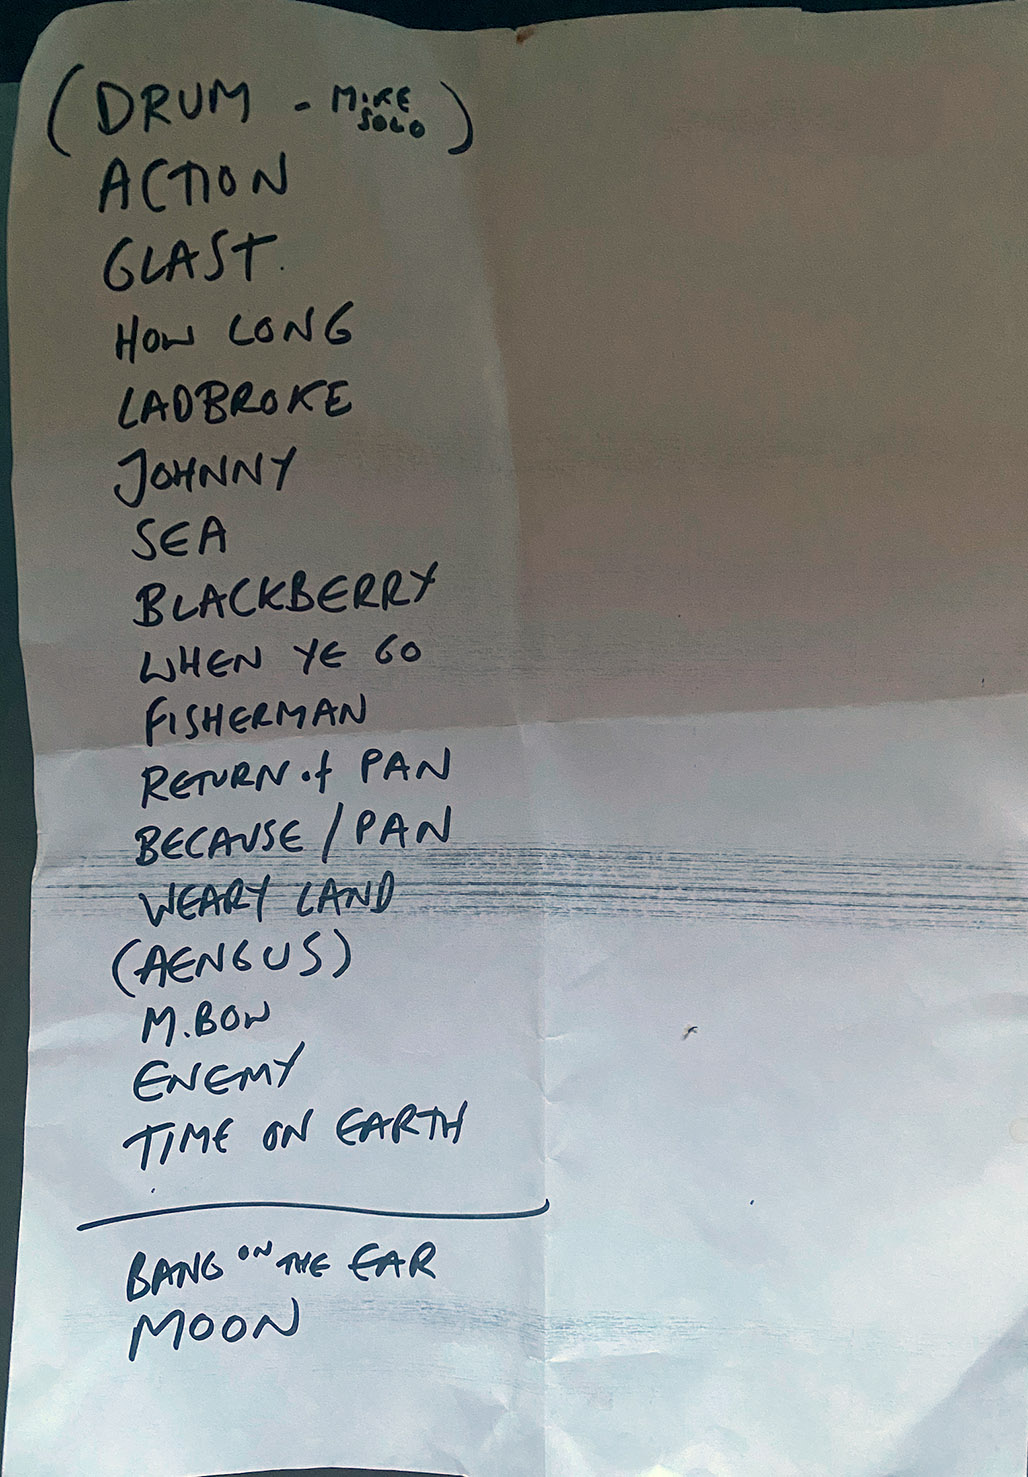 (DRUM - MIKE SOLO)
ACTION
GLAST.
HOW LONG
LADBROKE
JOHNNY
SEA
BLACKBERRY
WHEN YE GO
FISHERMAN
RETURN of PAN
BECAUSE / PAN
WEARY LAND
(AENGUS)
M.BOW
ENEMY
TIME ON EARTH
BANG ON THE EAR
MOON